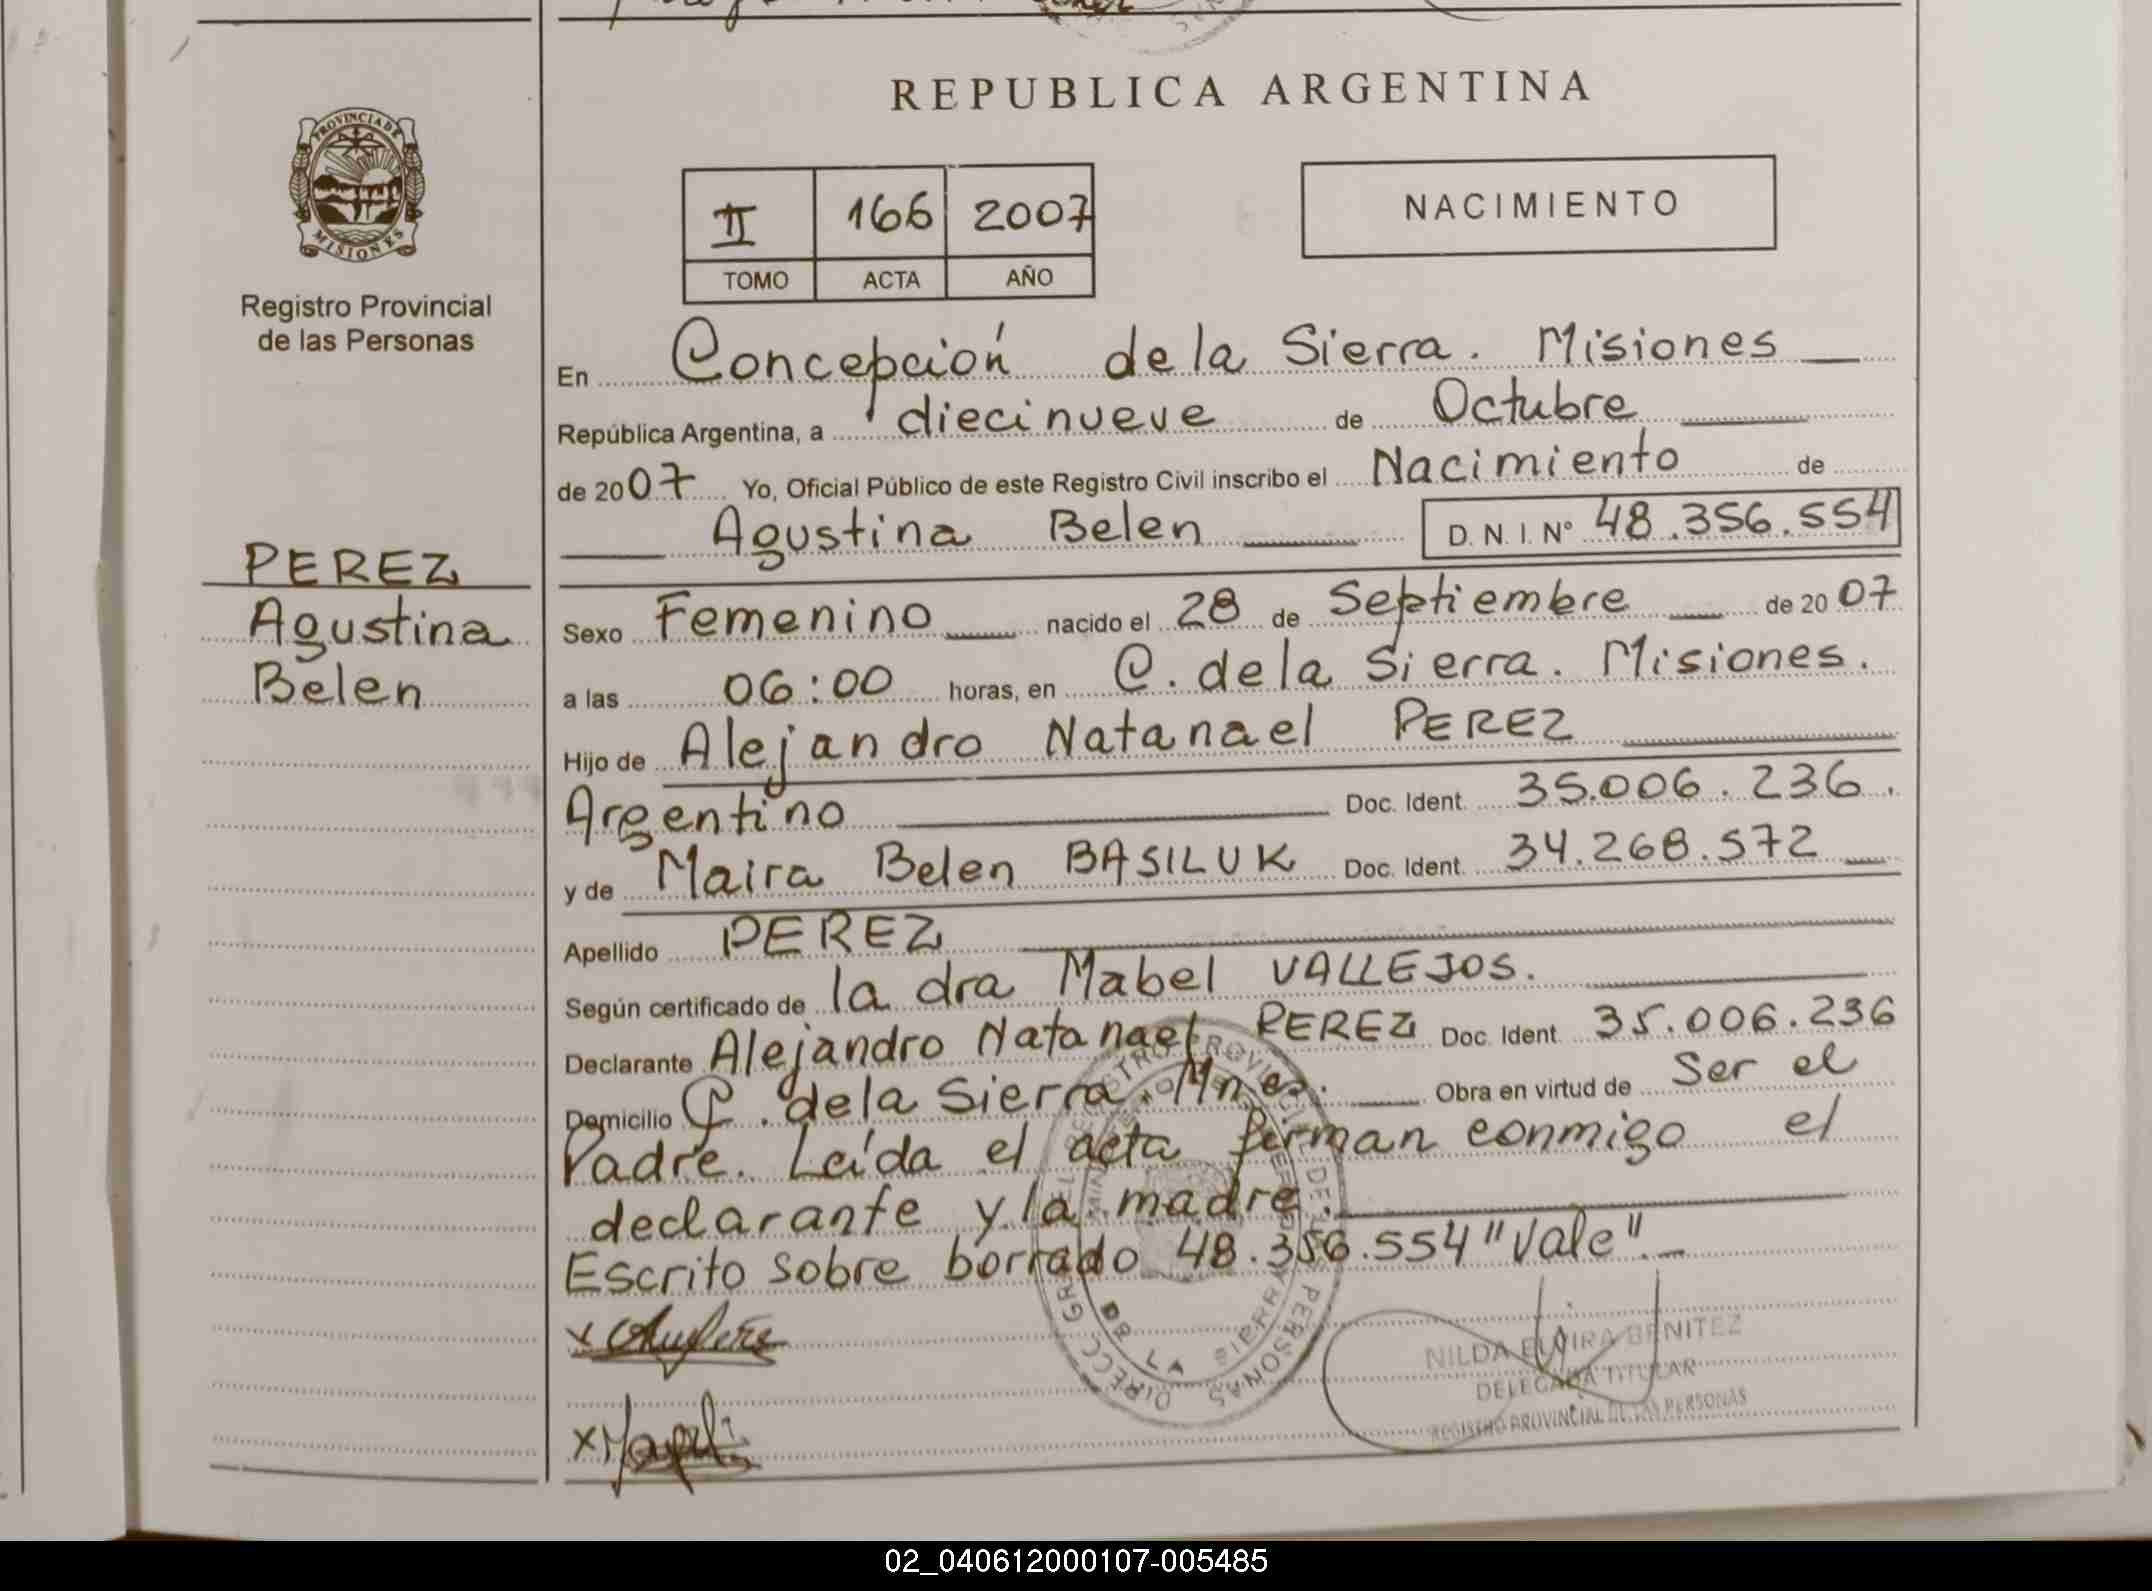 REPUBLICA ARGENTINA
PROVINCIA DE
MISIONES
Registro Provincial
de las Personas
II 166 2007
TOMO ACTA AÑO
NACIMIENTO
PEREZ
Agustina
Belen
En Concepción de la Sierra. Misiones
República Argentina, a diecinueve de Octubre
de 2007 Yo, Oficial Público de este Registro Civil inscribo el Nacimiento de
Agustina Belen D. N. I. N° 48.356.554
Sexo Femenino nacido el 28 de Septiembre de 2007
a las 06:00 horas, en C. de la Sierra. Misiones.
Hijo de Alejandro Natanael PEREZ
Argentino Doc. Ident. 35.006.236.
y de Maira Belen BASILUK Doc. Ident. 34.268.572
Apellido PEREZ
Según certificado de la dra Mabel VALLEJOS.
Declarante Alejandro Natanael PEREZ Doc. Ident. 35.006.236
Domicilio C. de la Sierra. Mnes. Obra en virtud de Ser el
Padre. Leída el acta firman conmigo el
declarante y la madre.
Escrito sobre borrado 48.356.554 "Vale".
DE LA SIERRA
NILDA ELVIRA BENITEZ
DELEGADA TITULAR
REGISTRO PROVINCIAL DE LAS PERSONAS
02_040612000107-005485